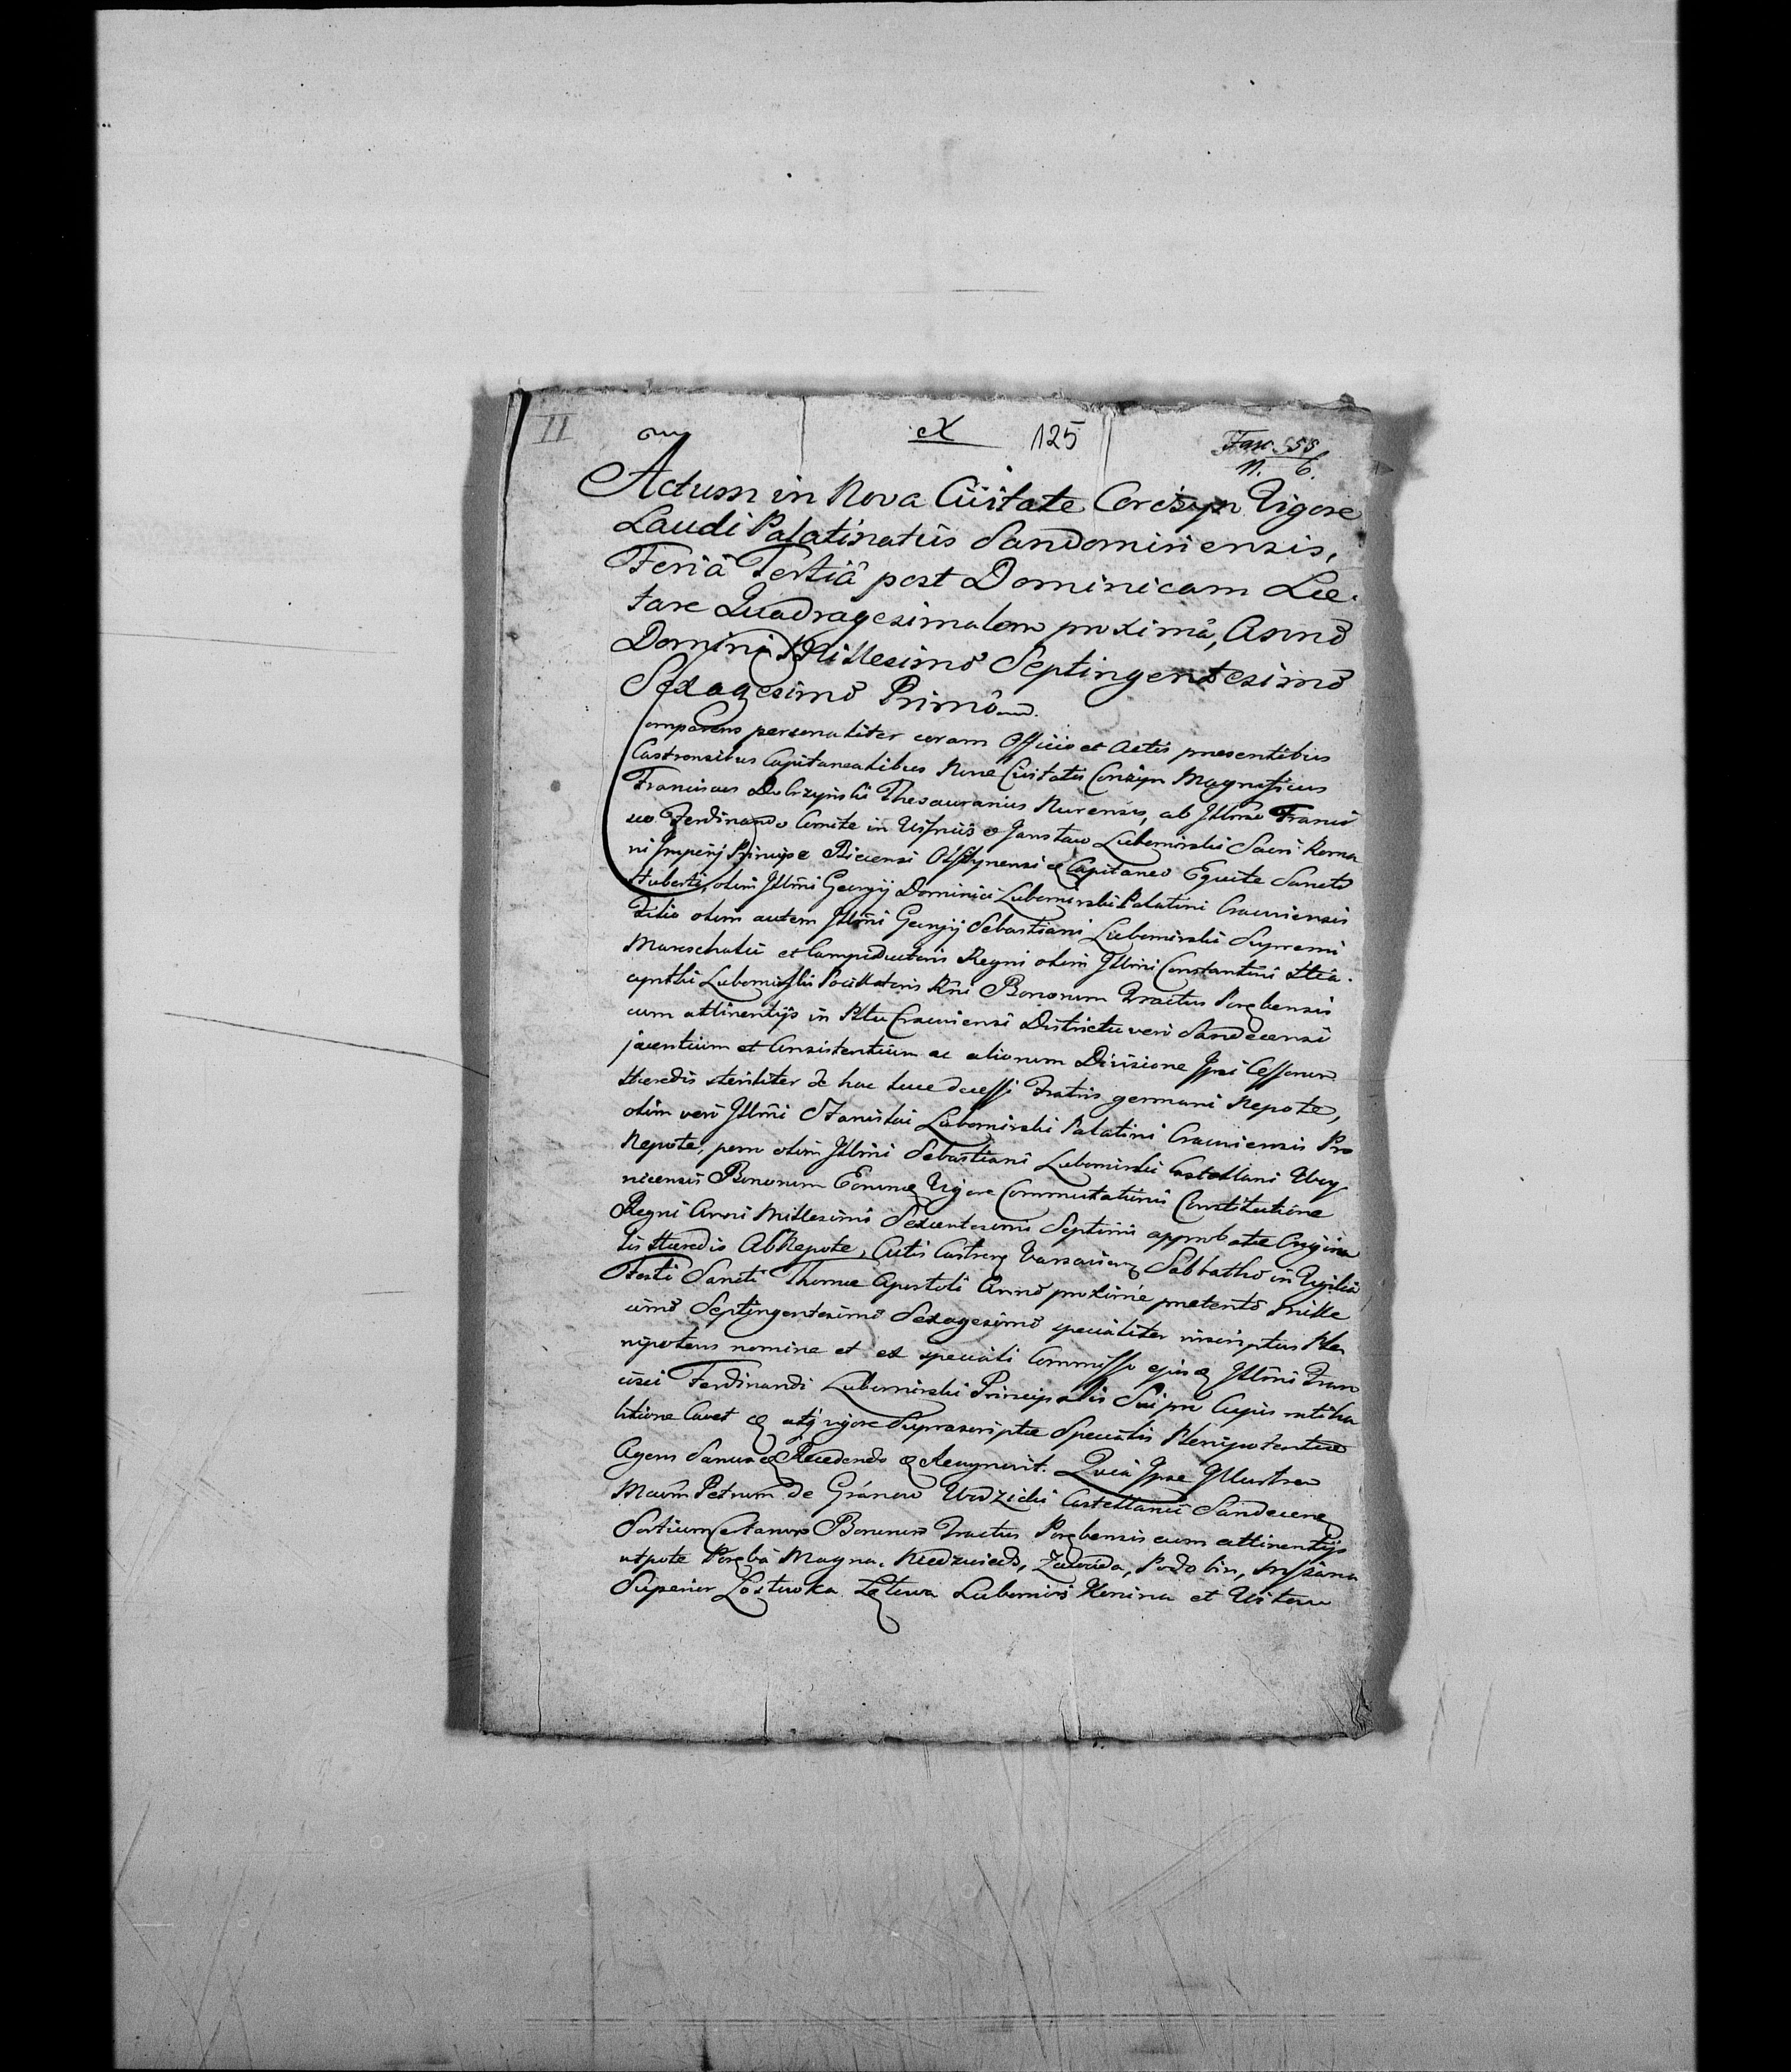 II
X 125 Fasc. 558
N. 6.
Actum in Nova Civitate Corczyn Vigore
Laudi Palatinatus Sandomiriensis,
Feriâ Tertiâ post Dominicam Lae-
tare Quadragesimalem proximâ, Annô
Domini Millesimô Septingentesimô
Sexagesimô Primô
Comparens personaliter coram Officio et Actis praesentibus
Castrensibus Capitaneatibus Novae Civitatis Corczyn Magnificus
Franciscus Dobrzynski Thesaurarius Nurensis, ab Illmo Franci
sco Ferdinando Comite in Wisnicz et Jarosław Lubomirski Sacri Roma
ni Imperij Principe Biecensi Olsztynensi &c Capitaneo Equite Sancti
Huberti, olim Illmi Georgij Dominici Lubomirski Palatini Cracoviensis
Filio olim autem Illmi Georgij Sebastiani Lubomirski Supremi
Mareschalci et Campiductoris Regni olim Illmi Constantini Hia-
cynthi Lubomirski Pocillatoris Rni Bonorum Tractus Porębensis
cum attinentijs in Pltu Cracoviensi Districtu vero Sandecensi
jacentium et Consistentium ac aliorum Divisione Ipsi Cessorum
Haeredis steriliter de hac luce decessi Fratris germani Nepote,
olim vero Illmi Stanislai Lubomirski Palatini Cracoviensis Pro
Nepote, porro olim Illmi Sebastiani Lubomirski Castellani Woy
nicensis Bonorum Eorumq Vigore Commutationis Constitutione
Regni Anni Millesimi Sexcentesimi Septimi approbatae Origina
lis Haeredis AbNepote, Actis Castren Varsavien Sabbatho in Vigilia
Festi Sancti Thomae Apostoli Annô proximè praeteritô Mille
simô Septingentesimô Sexagesimô specialiter inscriptus Ple
nipotens nomine et ex speciali Commisso ejusq Illmi Fran
cisci Ferdinandi Lubomirski Principalis Sui pro Cujus ratiha
bitione Cavet &c atq vigore Suprascriptae Specialis Plenipotentiae
Agens Sanus &c Recedendo &c Recognovit. Quia Ipse Illustrem
Macum Petrum de Granow Wodzicki Castellanum Sandecens
Sortium Bonorum Tractus Porębensis cum attinentijs
utpote Poręba Magna, Niedzwiedz, Zawada, Podobin, Mszana
Superior Łostowka Łętowa Lubomirz Konina et Witow